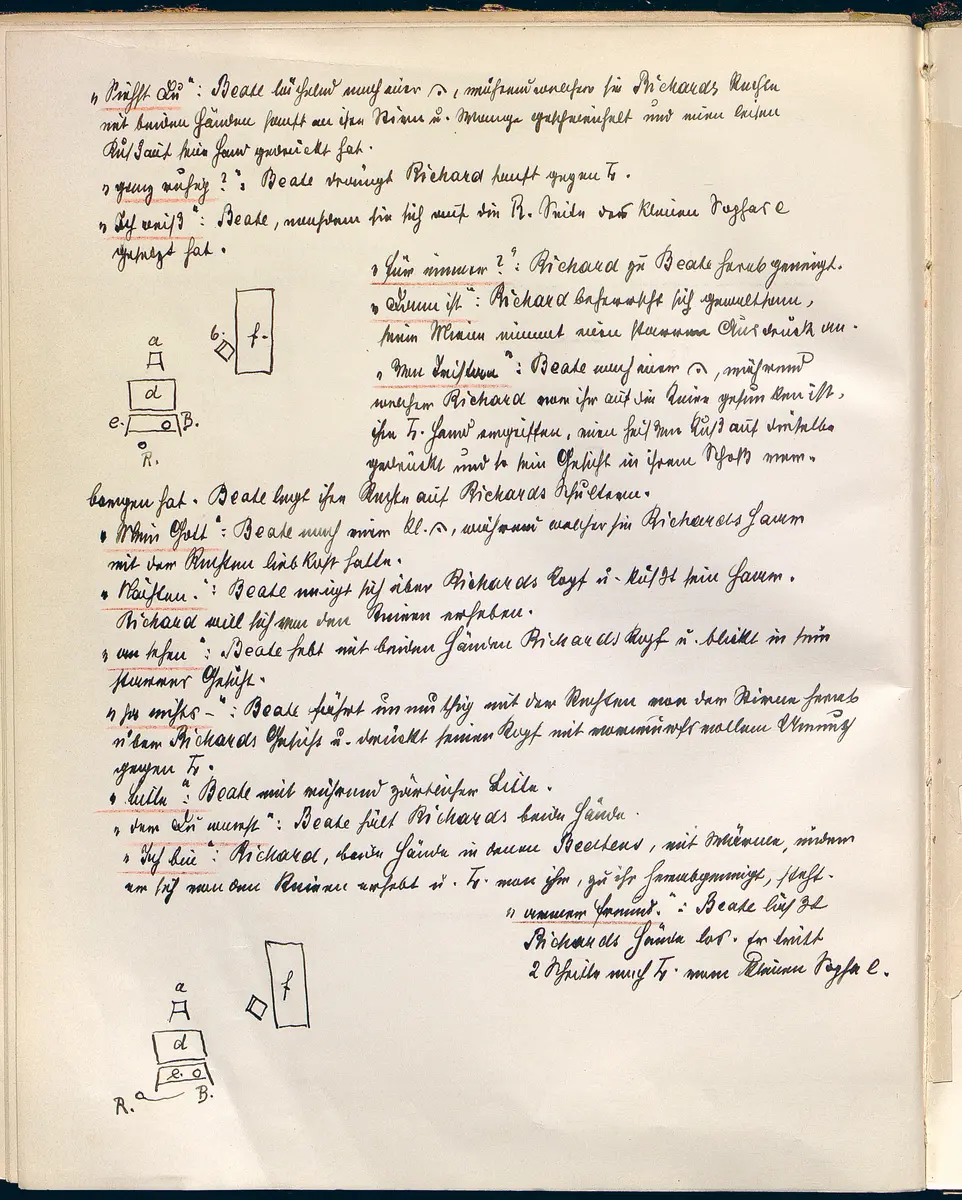 „Siehst Du“: Beate lächelnd nach einer 𝄐, während welcher sie Richards Rechte
mit beiden Händen sanft an ihre Stirn u. Wange geschmeichelt und einen leisen
Kuß auf seine Hand gedrückt hat.
„ganz ruhig?“: Beate drängt Richard sanft gegen L.
„Ich weiß“: Beate, nachdem sie sich auf die R. Seite des kleinen Sophas e
gesetzt hat.
„für immer?“: Richard zu Beate herab geneigt.
„Dann ist“: Richard beherrscht sich gewaltsam,
seine Miene nimmt einen starren Ausdruck an.
„Von Tristan“: Beate nach einer 𝄐, während
welcher Richard vor ihr auf die Kniee gesunken ist,
ihre L. Hand ergriffen, einen heißen Kuß auf dieselbe
gedrückt und so sein Gesicht in ihrem Schoß ver-
borgen hat. Beate legt ihre Rechte auf Richards Schultern.
„Mein Gott“: Beate nach einer kl. 𝄐, während welcher sie Richards Haar
mit der Rechten liebkost hatte.
„Nächten.“: Beate neigt sich über Richards Kopf u. küßt sein Haar.
Richard will sich von den Knieen erheben.
„an sehen“: Beate hebt mit beiden Händen Richards Kopf u. blickt in sein
starres Gesicht.
„ja nichts –“: Beate fährt unmuthig mit der Rechten von der Stirne herab
über Richards Gesicht u. drückt seinen Kopf mit vorwurfsvollem Unmuth
gegen L.
„bitte“: Beate mit rührend zärtlicher Bitte.
„der Du warst“: Beate hält Richards beide Hände.
„Ich bin“: Richard, beide Hände in denen Beatens, mit Wärme, indem
er sich von den Knieen erhebt u. L. von ihr, zu ihr herabgeneigt, steht.
„armer Freund.“: Beate läßt
Richards Hände los. Er tritt
2 Schritte nach L. vom kleinen Sopha e.
a
b.
f.
d
e.
B.
R.
a
f
d
e.
R.
B.